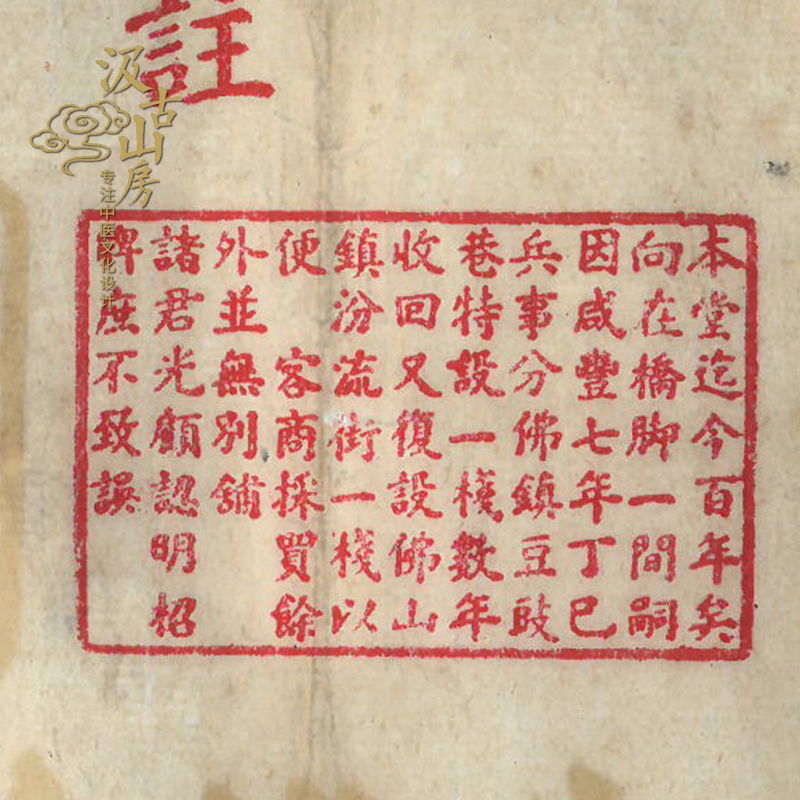 註
本堂迄今百年矣
向在橋脚一間嗣
因咸豐七年丁巳
兵事分佛鎮豆豉
巷特設一棧數年
收回又復設佛山
鎮汾流街一棧以
便 客商採買餘
外並無別舖
諸君光顧認明招
牌庶不致誤
汲古山房
专注中医文化设计